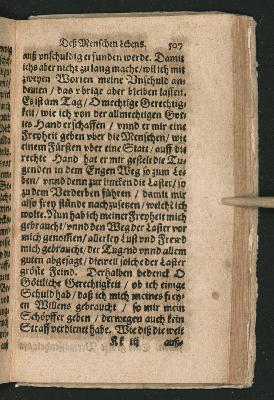 Deß Menschen Lebens. 507
auß vnschuldig erfunden werde. Damit
ichs aber nicht zu lang mache/ wil ich mit
zweyen Worten meine Vnschuld an-
deuten / das vbrige aber bleiben lassen.
Es ist am Tag / O mechtige Gerechtig-
keit / wie ich von der allmechtigen Got-
tes Hand erschaffen / vnnd er mir eine
Freyheit geben vber die Menschen / wie
einem Fürsten vber eine Statt / auff die
rechte Hand hat er mir gestelt die Tu-
genden in dem Engen Weg so zum Le-
ben / vnnd denn zur lincken die Laster / so
zu dem Verderben führen / damit mir
also frey stünde nachzusetzen / welchs ich
wolte. Nun hab ich meiner Freyheit mich
gebraucht / vnnd den Weg der Laster vor
mich genommen / allerley Lust vnd Frewd
mich gebraucht / der Tugend vnnd allem
guten abgesagt / dieweil solche der Laster
größte Feind. Derhalben bedenck O
Göttliche Gerechtigkeit / ob ich einige
Schuld hab / daß ich mich meines frey-
en Willens gebraucht / so mir mein
Schöpffer geben / derwegen auch kein
Straff verdienet habe. Wie diß die welt
Kk iij auß-